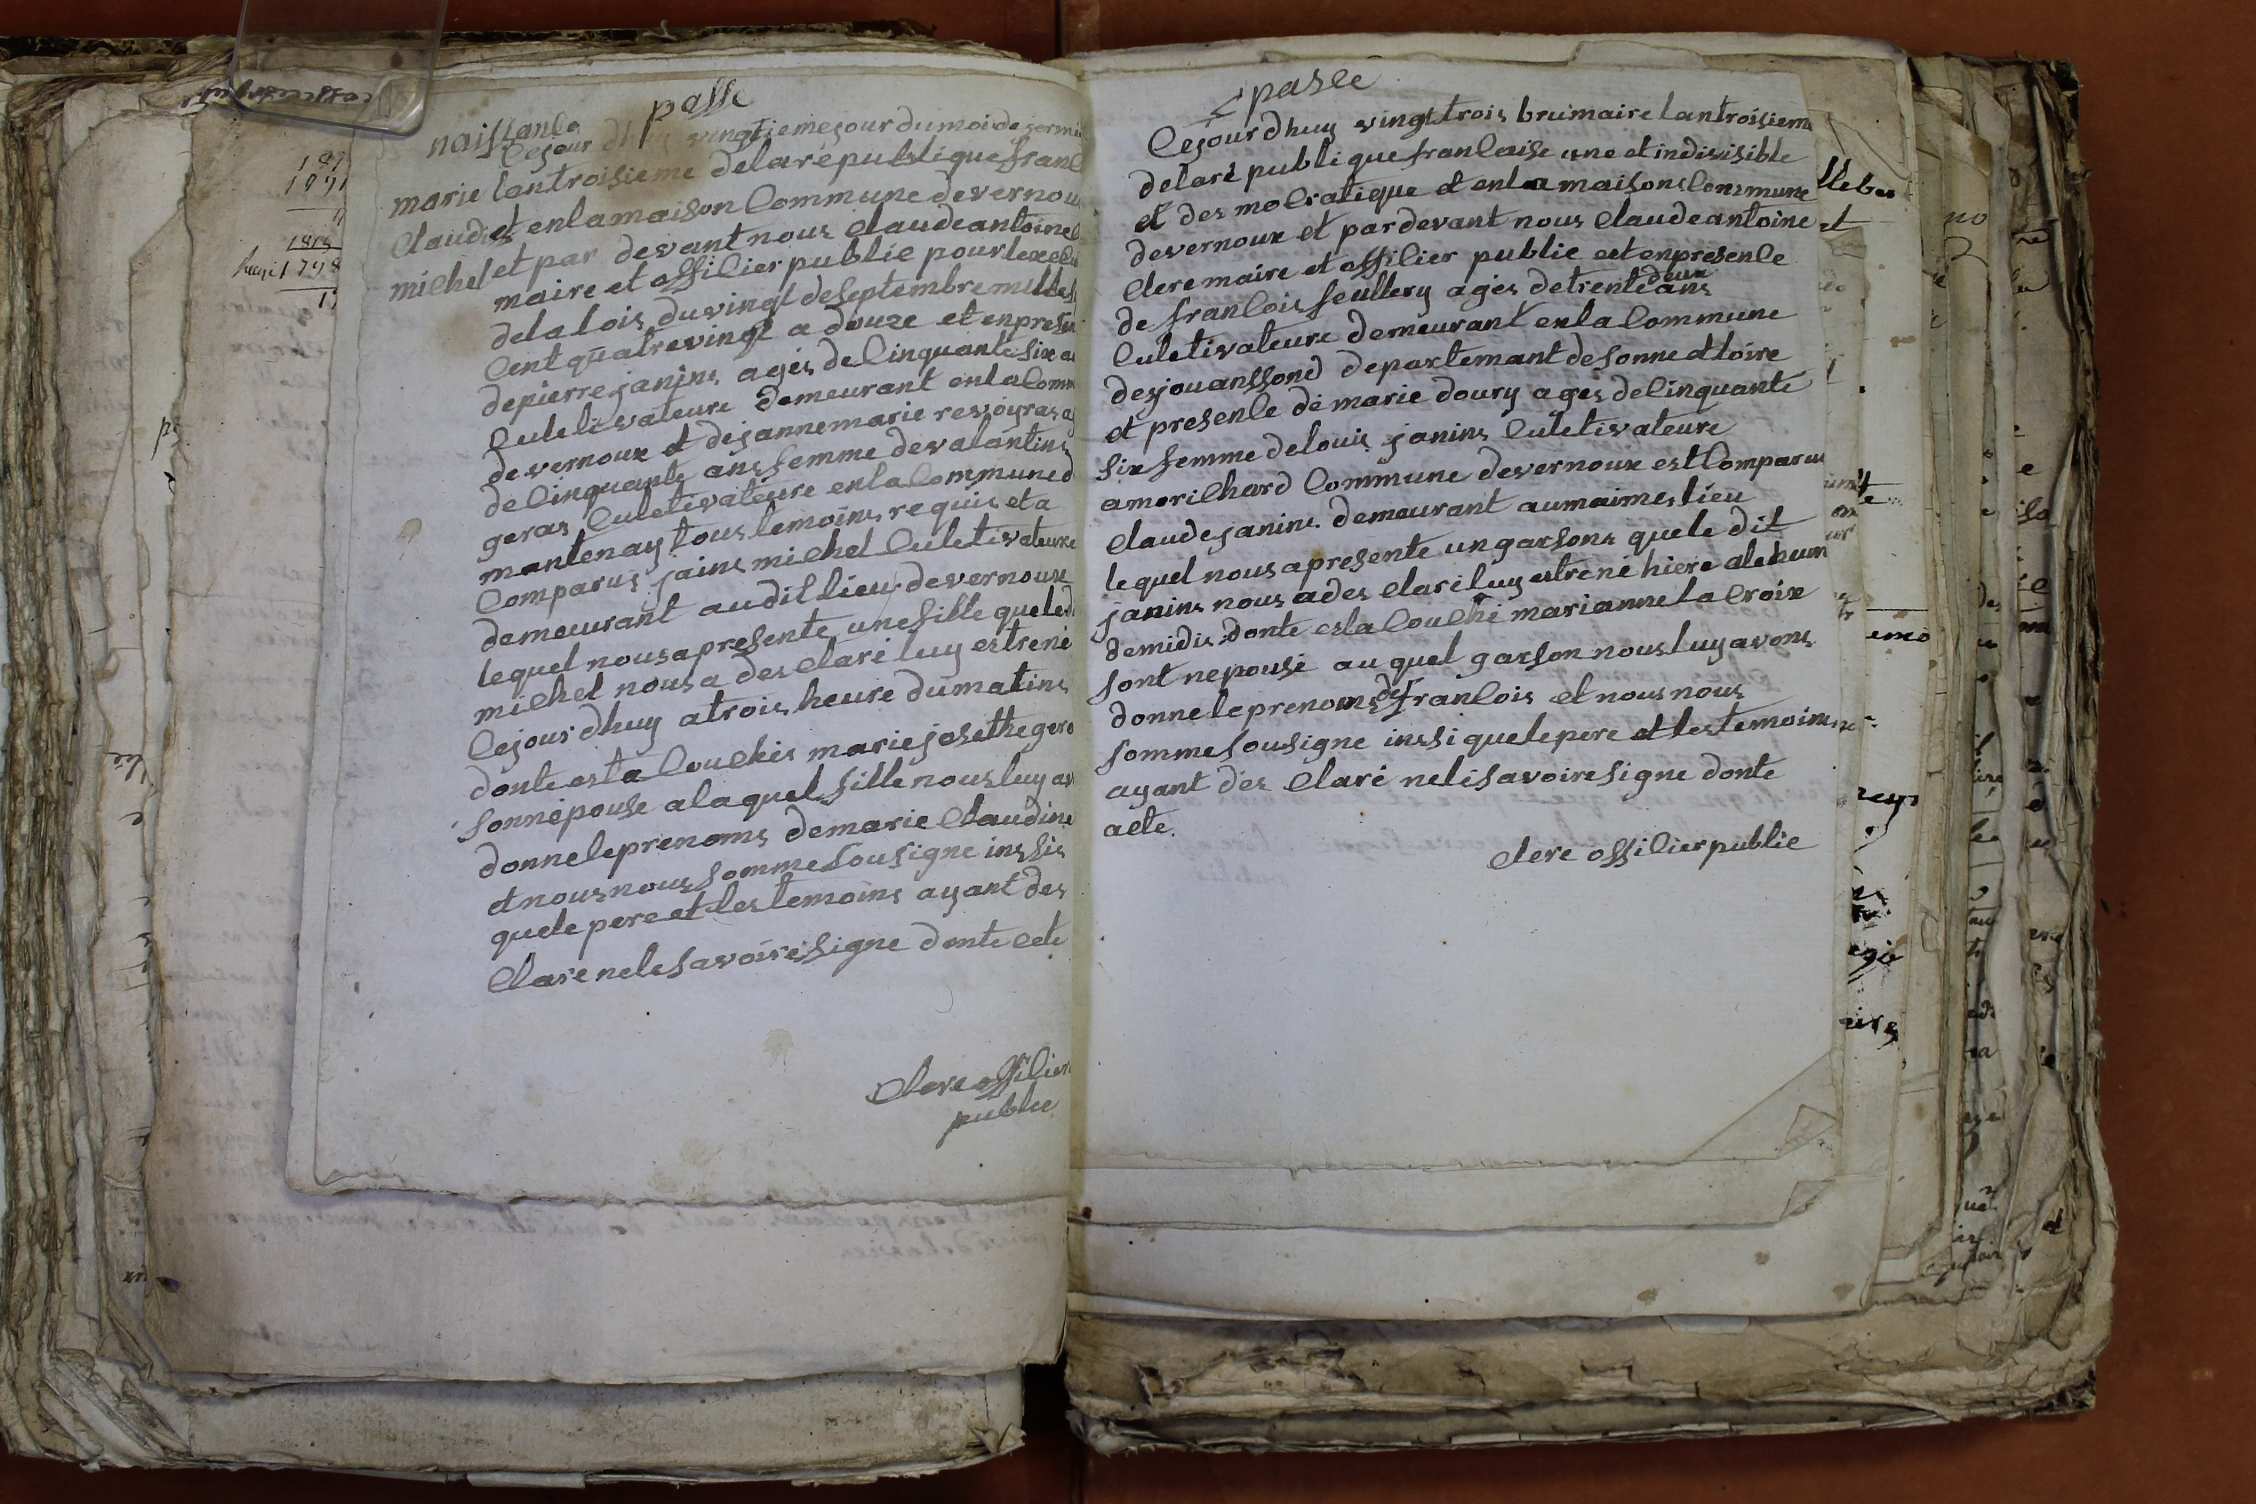 passe
naissance
Cejour dhuy vingtieme jour du moi de germi
marie lantroisieme delarepublique franc
claudi et enlamaison Commune devernou
michel et par devant nous claudeantoine
maire et offilier publie pour lexecu
delalois duvingt deseptembre mille
Cent quatrevingt a douze et enprese
depierre janins ages de Cinquante six a
Culetivateure demeurant enlacomm
devernoux et dejannemarie revoyras a
de Cinquante ans femme devalantins
geras Culetivateure enlacommune d
mantenay tous temoins requis et a
Comparus jains michel Culetivateure
demeurant audit lieu devernoux
lequel nousapresente unefille queled
michel nousa des claré luy estrené
Cejour dhuy atrois heure dumatins
donte esta Couchés mariejosethe gera
sonnépouse alaquel fille nousluy av
donneleprenoms demarie Claudine
et nousnous sommesousigne inssis
quele pere et les temoins ayant des
Clare nelesavoiresigne donte acte
Clere offilier
publie
187
1791
1815
1798
17
pasee
Cejour dhuy vingt trois brumaire lantroisieme
delaré publique francaise une et indivisible
et des mocratique et enla maisons Commune
devernoux et pardevant nous Claudeantoine
Clere maire et offilier publie et enpresenle
de francois feullery ages detrente deux ans
Culetivateure demeurant enla Commune
desjouanssond departemant desonne et loire
et presenle de marie doury ages deCinquante
six femme delouis janins Culetivateure
amorichard Commune devernoux est Comparus
Claudejanins demeurant aumaimes lieu
lequel nousapresente ungarsons quele dit
janins nous ades clareluy estrené hiere aleheure
demidis donte esla Couché marianne la Croix
sont nepousé auquel garson nousluy avons
donneleprenoms de francois et nous nous
sommesousigne inssi quelepere et lestemoins
ayant des Claré nelésavoiresigne donte
acte.
Clere offilier publie